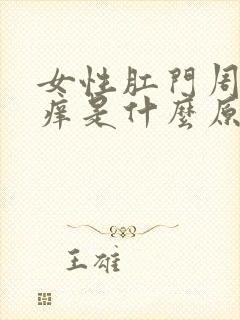 女性肛門周
痒是什麼原
王雄